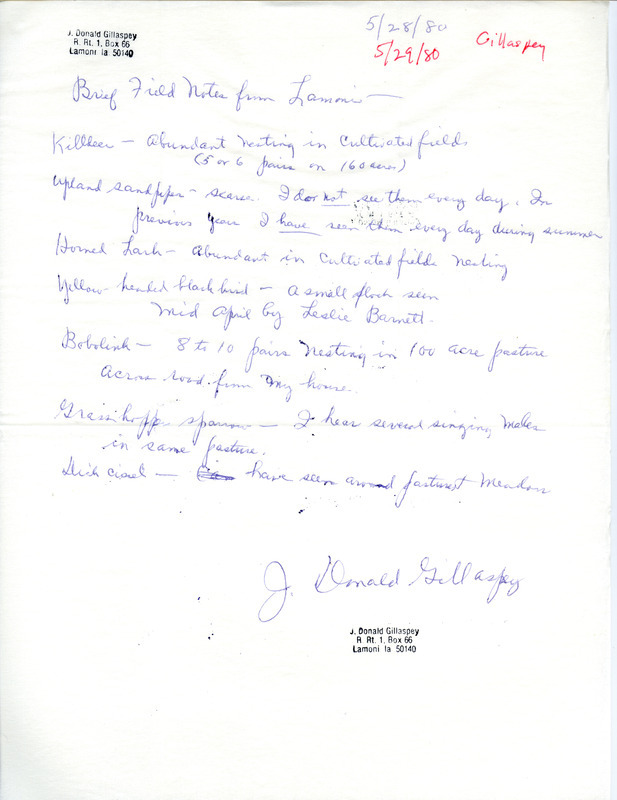 J. Donald Gillaspey
R. Rt. 1, Box 66
Lamoni Ia. 50140
5/28/80
5/29/80
Gillaspey
Brief Field Notes from Lamoni —
Killdeer — Abundant nesting in cultivated fields
(5 or 6 pairs on 160 acres)
Upland sandpiper - scarce. I do not see them every day. In
previous years I have seen them every day during summer
Horned Lark - abundant in cultivated fields nesting
Yellow headed blackbird — a small flock seen
mid April by Leslie Barnett.
Bobolink — 8 to 10 pairs nesting in 100 acre pasture
across road from my house.
Grasshopper sparrow — I hear several singing males
in same pasture.
Dickcissel — have seen around pastures + meadow
J. Donald Gillaspey
J. Donald Gillaspey
R. Rt. 1, Box 66
Lamoni Ia 50140